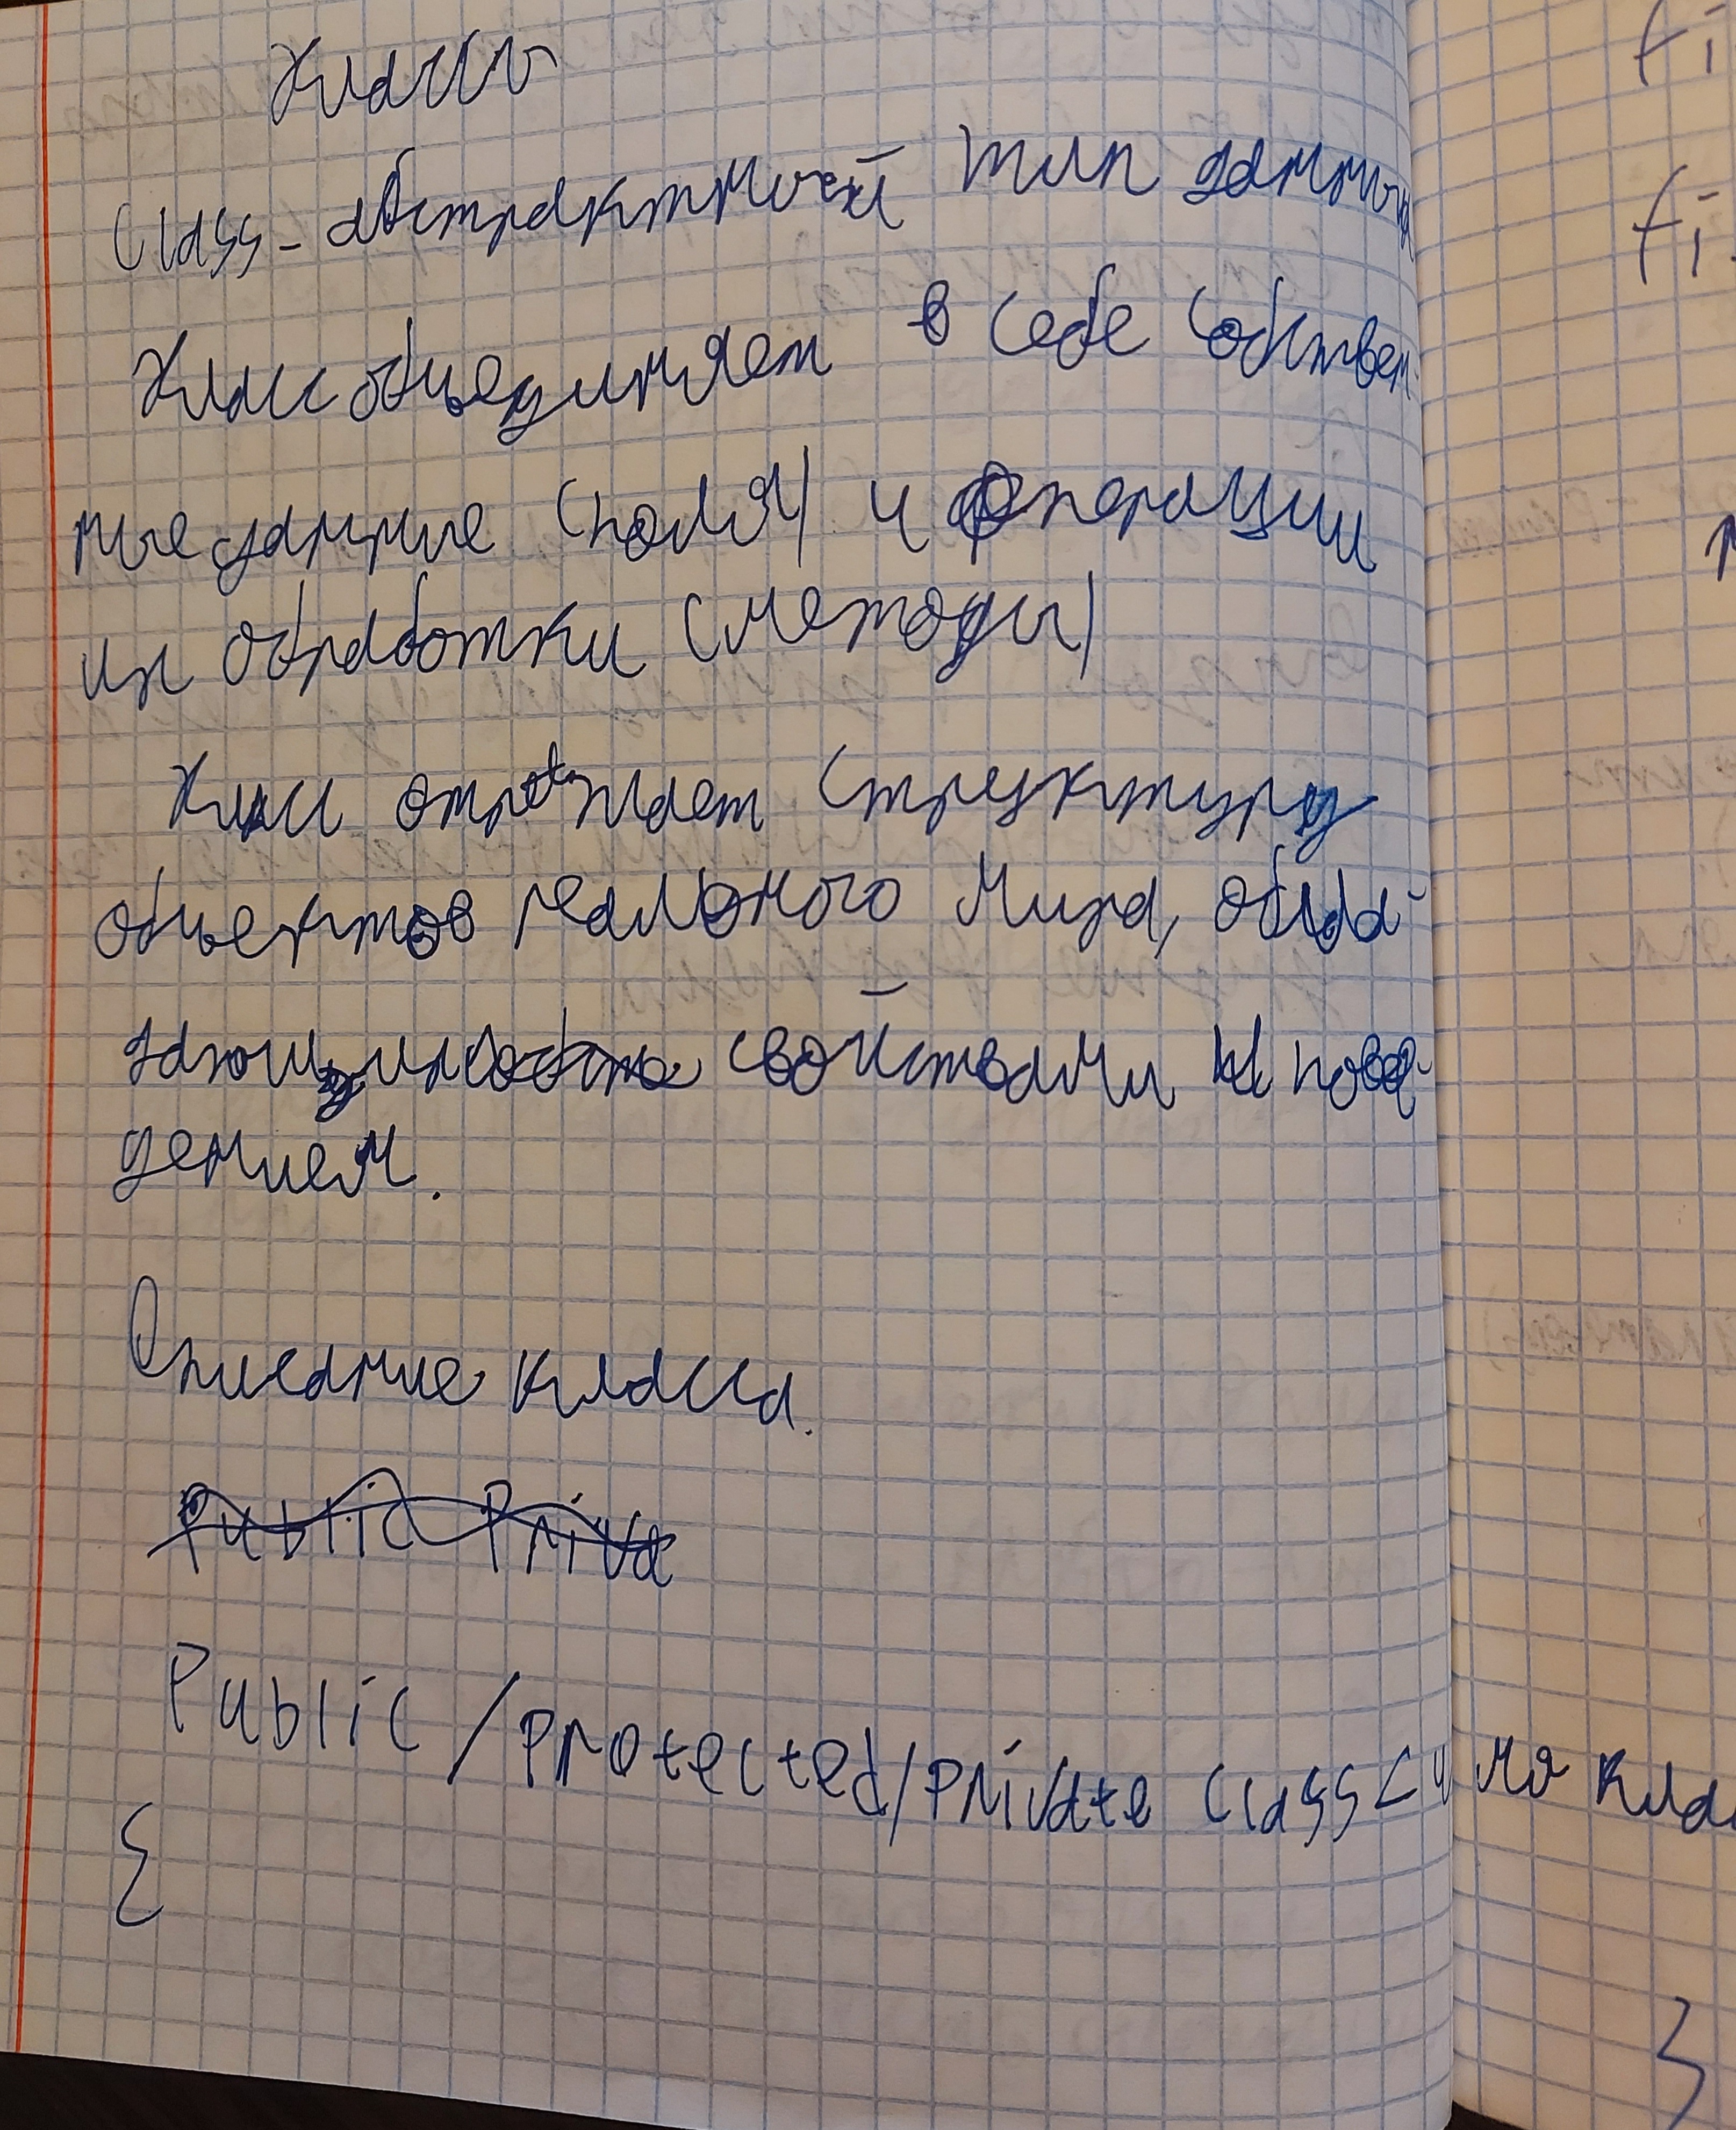 Классы
Class - абстрактный тип данных
Класс объединяет в себе собствен-
ные данные (поля) и операции
их обработки (методы)
Класс отражает структуру
объектов реального мира, обла-
дающих свойствами и пове-
дением.
Описание класса.
Public Priva
Public / Protected / Private class < имя кла
{
}
fi
fi